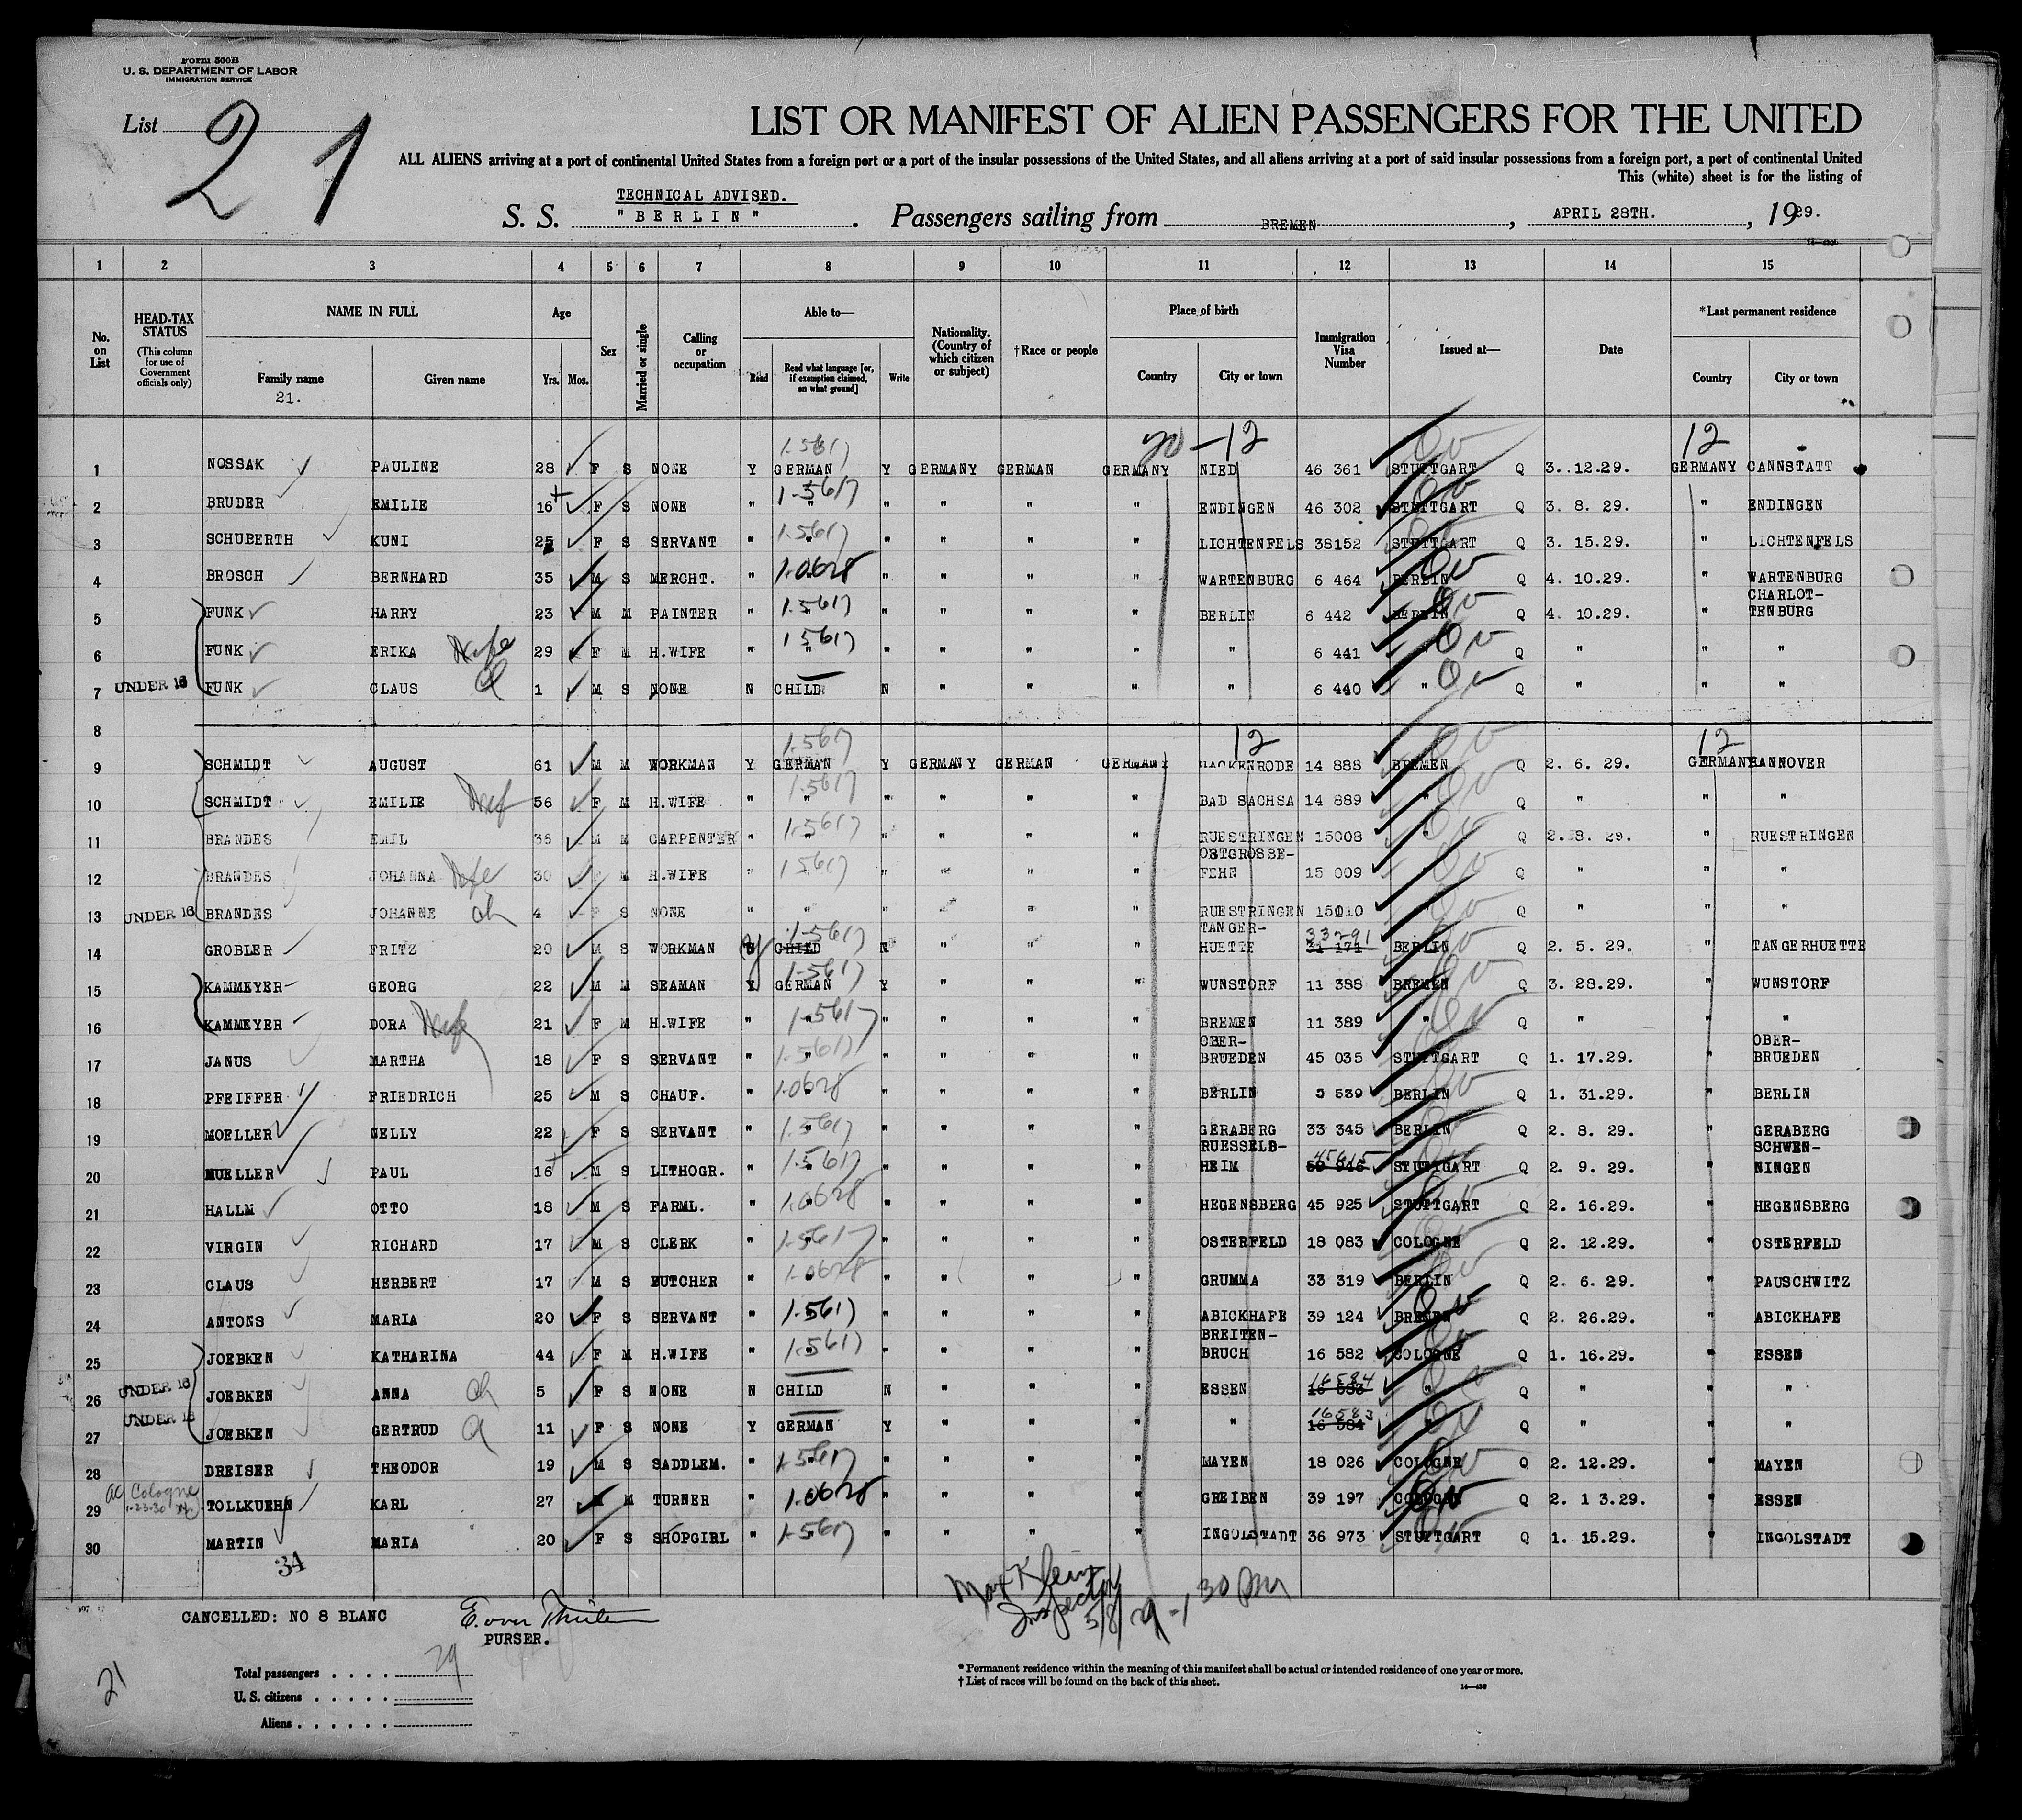 Form 500B
U. S. DEPARTMENT OF LABOR
IMMIGRATION SERVICE
List 21
LIST OR MANIFEST OF ALIEN PASSENGERS FOR THE UNITED
ALL ALIENS arriving at a port of continental United States from a foreign port or a port of the insular possessions of the United States, and all aliens arriving at a port of said insular possessions from a foreign port, a port of continental United
This (white) sheet is for the listing of
TECHNICAL ADVISED.
S. S. "BERLIN". Passengers sailing from BREMEN, APRIL 28TH., 1929.
1 2 3 4 5 6 7 8 9 10 11 12 13 14 15
No. on List
HEAD-TAX STATUS
(This column for use of Government officials only)
NAME IN FULL
Family name
21.
Given name
Age
Yrs. Mos.
Sex
Married or single
Calling or occupation
Able to—
Read
Read what language [or, if exemption claimed, on what ground]
Write
Nationality. (Country of which citizen or subject)
†Race or people
Place of birth
Country
City or town
Immigration Visa Number
Issued at—
Date
*Last permanent residence
Country
City or town
1-5617 20-12 12
1 NOSSAK PAULINE 28 F S NONE Y GERMAN Y GERMANY GERMAN GERMANY NIED 46 361 STUTTGART Q 3. 12.29. GERMANY CANNSTATT
2 BRUDER EMILIE 16 F S NONE " 1-5617 " " " " " ENDINGEN 46 302 STUTTGART Q 3. 8. 29. " ENDINGEN
3 SCHUBERTH KUNI 25 F S SERVANT " 1-5617 " " " " " LICHTENFELS 38152 STUTTGART Q 3. 15.29. " LICHTENFELS
4 BROSCH BERNHARD 35 M S MERCHT. " 1-0628 " " " " WARTENBURG 6 464 BERLIN Q 4. 10.29. " WARTENBURG
5 FUNK HARRY 23 M M PAINTER " 1-5617 " " " " " BERLIN 6 442 BERLIN Q 4. 10.29. " CHARLOT-
TENBURG
6 FUNK ERIKA Wife 29 F M H.WIFE " 1 5617 " " " " " " 6 441 " Q " " "
UNDER 16 7 FUNK CLAUS 1 M S NONE N CHILD N " " " " 6 440 " Q " " "
8
1-5617 12 12
9 SCHMIDT AUGUST 61 M M WORKMAN Y GERMAN Y GERMANY GERMAN GERMANY HACKENRODE 14 888 BREMEN Q 2. 6. 29. GERMANY HANNOVER
10 SCHMIDT EMILIE Wife 56 F M H.WIFE " 1-5617 " " " " " BAD SACHSA 14 889 " Q " " "
11 BRANDES EMIL 36 M M CARPENTER " 1-5617 " " " " " RUESTRINGEN 15008 " Q 2. 8. 29. " RUESTRINGEN
12 BRANDES JOHANNA Wife 30 M H.WIFE " 1 5617 " " " " " OSTGROSSE-
FEHN 15 009 " Q " " "
UNDER 16 13 BRANDES JOHANNE ch 4 F S NONE " " " " " " RUESTRINGEN 15010 " Q " " "
14 GROBLER FRITZ 20 M S WORKMAN y CHILD 1-5617 N " " " TANGER-
HUETTE 31 171 33291 BERLIN Q 2. 5. 29. " TANGERHUETTE
15 KAMMEYER GEORG 22 M M SEAMAN Y GERMAN 1-5617 Y " " " WUNSTORF 11 388 BREMEN Q 3. 28.29. " WUNSTORF
16 KAMMEYER DORA Wife 21 F M H.WIFE " 1-5617 " " " " " BREMEN 11 389 " Q " " "
17 JANUS MARTHA 18 F S SERVANT " 1-5617 " " " " " OBER-
BRUEDEN 45 035 STUTTGART Q 1. 17.29. " OBER-
BRUEDEN
18 PFEIFFER FRIEDRICH 25 M S CHAUF. " 1-0628 " " " " " BERLIN 539 BERLIN Q 1. 31.29. " BERLIN
19 MOELLER NELLY 22 F S SERVANT " 1-5617 " " " " " GERABERG 33 345 BERLIN Q 2. 8. 29. " GERABERG
20 MUELLER PAUL 16 M S LITHOGR. " 1-5617 " " " " " RUESSELS-
HEIM 45615 STUTTGART Q 2. 9. 29. " SCHWEN-
NINGEN
21 HALLM OTTO 18 M S FARML. " 1.0628 " " " " " HEGENSBERG 45 925 STUTTGART Q 2. 16.29. " HEGENSBERG
22 VIRGIN RICHARD 17 M S CLERK " 1-5617 " " " " " OSTERFELD 18 083 COLOGNE Q 2. 12.29. " OSTERFELD
23 CLAUS HERBERT 17 M S BUTCHER " 1-0628 " " " " " GRUMMA 33 319 BERLIN Q 2. 6. 29. " PAUSCHWITZ
24 ANTONS MARIA 20 F S SERVANT " 1-5617 " " " " " ABICKHAFE 39 124 BREMEN Q 2. 26.29. " ABICKHAFE
25 JOEBKEN KATHARINA 44 F M H.WIFE " 1-5617 " " " " " BREITEN-
BRUCH 16 582 COLOGNE Q 1. 16.29. " ESSEN
UNDER 16 26 JOEBKEN ANNA ch 5 F S NONE N CHILD N " " " ESSEN 16 583 16584 " Q " " "
UNDER 16 27 JOEBKEN GERTRUD 11 F S NONE Y GERMAN Y " " " " 16 584 16583 " Q " " "
28 DREISER THEODOR 19 M S SADDLEM. " 1-5617 " " " " " MAYEN 18 026 COLOGNE Q 2. 12.29. " MAYEN
ac Cologne 1-23-30 29 TOLLKUEHN KARL 27 M M TURNER " 1-0628 " " " " " GREIBEN 39 197 COLOGNE Q 2. 1 3.29. " ESSEN
30 MARTIN MARIA 20 F S SHOPGIRL " 1-5617 " " " " " INGOLSTADT 36 973 STUTTGART Q 1. 15.29. " INGOLSTADT
34
Max Klein
Inspector
5/8/29 - 1 30 PM
CANCELLED: NO 8 BLANC
PURSER.
21
Total passengers . . . . 29
U. S. citizens . . . . .
Aliens . . . . . .
* Permanent residence within the meaning of this manifest shall be actual or intended residence of one year or more.
† List of races will be found on the back of this sheet.
14—430